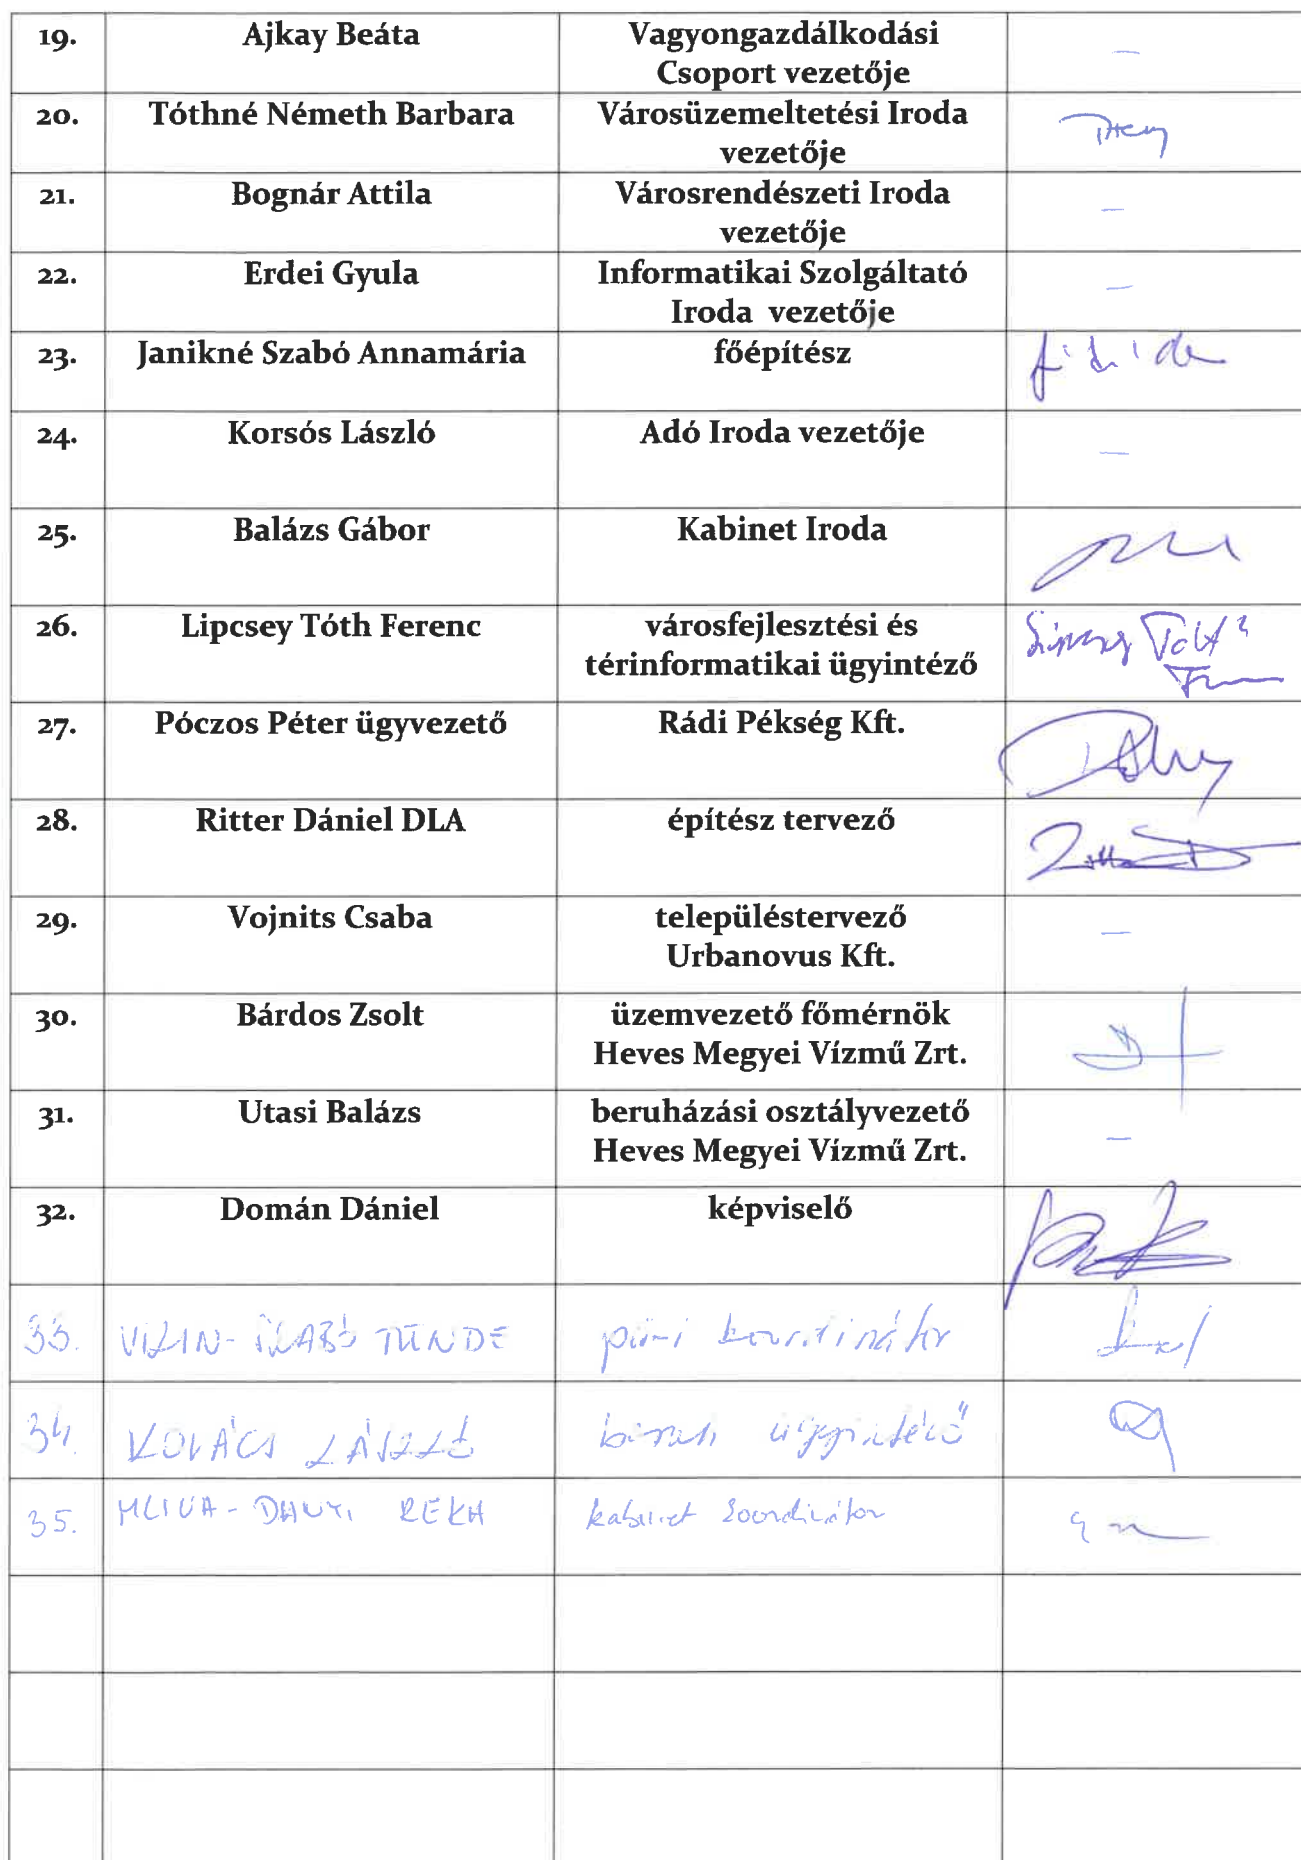 19. Ajkay Beáta Vagyongazdálkodási
Csoport vezetője –
20. Tóthné Németh Barbara Városüzemeltetési Iroda
vezetője
21. Bognár Attila Városrendészeti Iroda
vezetője –
22. Erdei Gyula Informatikai Szolgáltató
Iroda vezetője –
23. Janikné Szabó Annamária főépítész
24. Korsós László Adó Iroda vezetője –
25. Balázs Gábor Kabinet Iroda
26. Lipcsey Tóth Ferenc városfejlesztési és
térinformatikai ügyintéző
27. Póczos Péter ügyvezető Rádi Pékség Kft.
28. Ritter Dániel DLA építész tervező
29. Vojnits Csaba településtervező
Urbanovus Kft. –
30. Bárdos Zsolt üzemvezető főmérnök
Heves Megyei Vízmű Zrt.
31. Utasi Balázs beruházási osztályvezető
Heves Megyei Vízmű Zrt. –
32. Domán Dániel képviselő
33. TÜNDE koordinátor
34. KOVÁCS LÁSZLÓ ügyintéző
35. RÉKA kabinet koordinátor